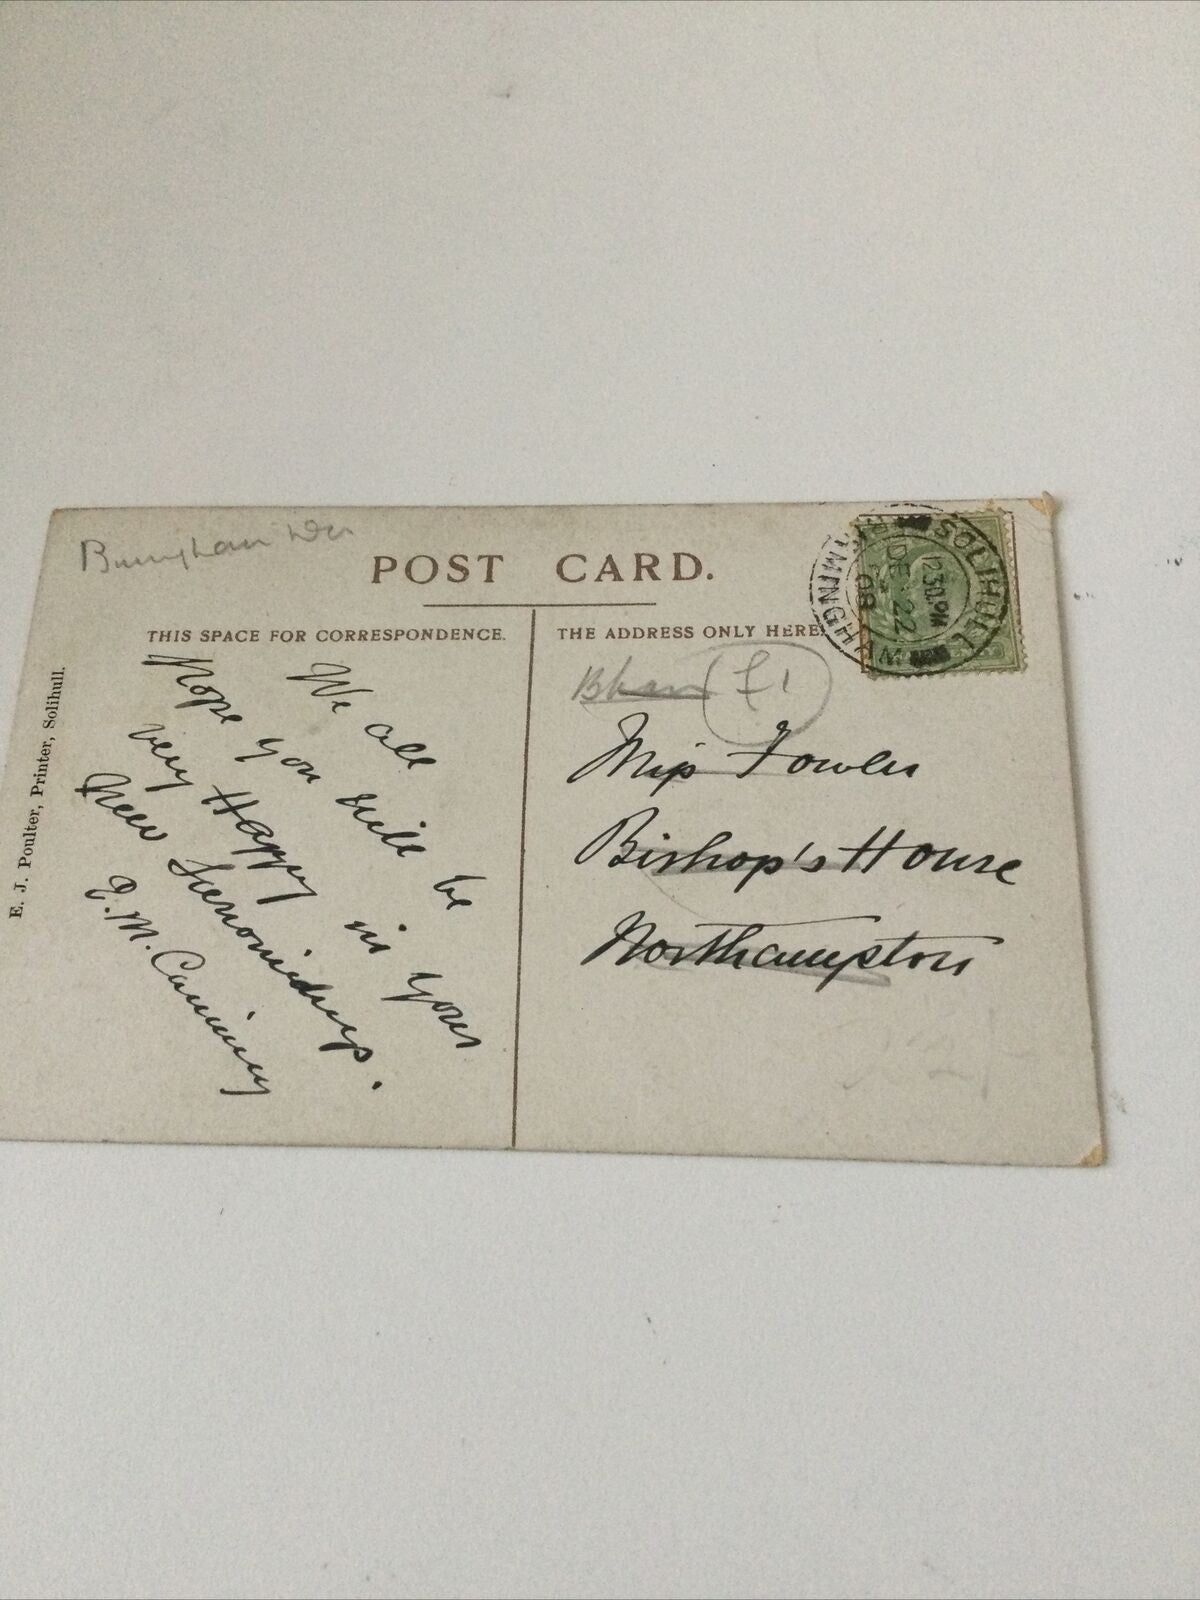 POST CARD.
THIS SPACE FOR CORRESPONDENCE.
THE ADDRESS ONLY HERE.
SOLIHULL
BIRMINGHAM
12.30 PM
DE 22
08
We all
Hope you will be
very Happy in your
New
E. M. Canning
E. J. Poulter, Printer, Solihull.
Bham £1
Miss Fowler
Bishop's House
Northampton